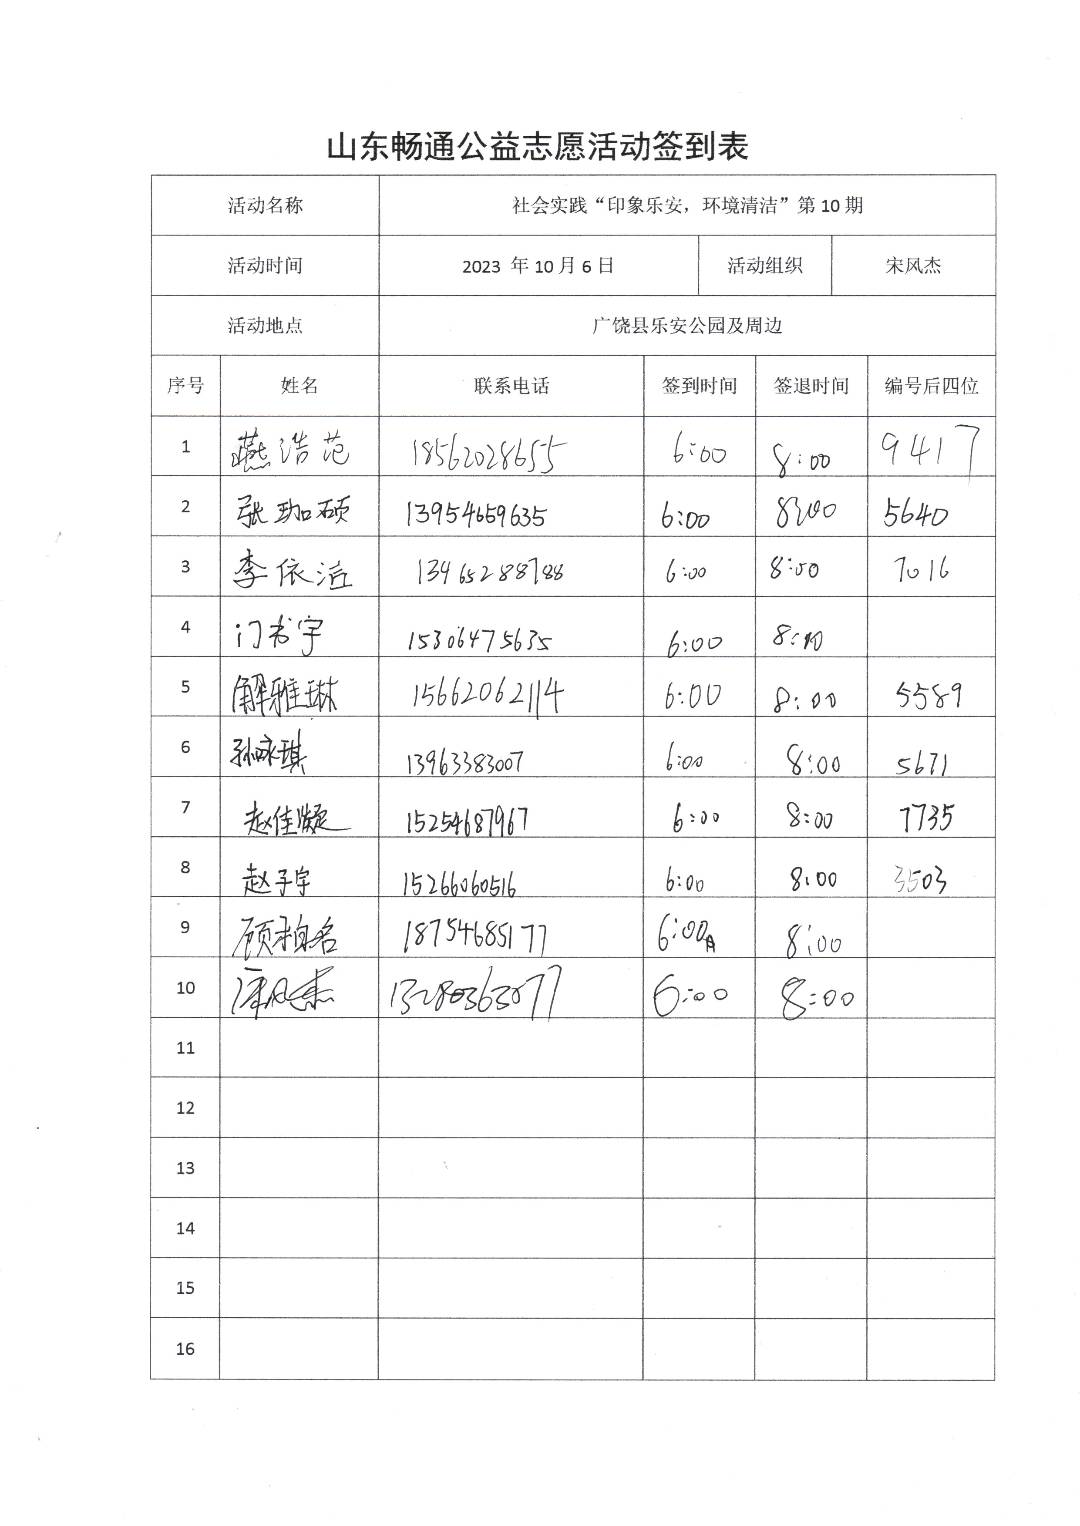 山东畅通公益志愿活动签到表
活动名称 社会实践“印象乐安，环境清洁”第 10 期
活动时间 2023 年 10 月 6 日 活动组织 宋风杰
活动地点 广饶县乐安公园及周边
序号 姓名 联系电话 签到时间 签退时间 编号后四位
1 燕浩范 18562028655 6:00 8:00 9417
2 张珈硕 13954659635 6:00 8:00 5640
3 李依洁 13465288788 6:00 8:00 7016
4 门书宇 15306475635 6:00 8:00
5 解雅琳 15662062114 6:00 8:00 5589
6 孙咏琪 13963383007 6:00 8:00 5671
7 赵佳凝 15254687967 6:00 8:00 7735
8 赵子宇 15266060516 6:00 8:00 3503
9 顾柏名 18754685177 6:00 8:00
10 13280363077 6:00 8:00
11
12
13
14
15
16